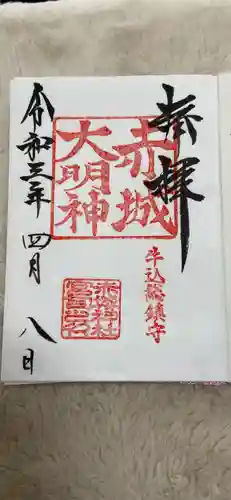 奉拝
赤城
大明神
牛込総鎮守
赤城神社
令和三年四月八日